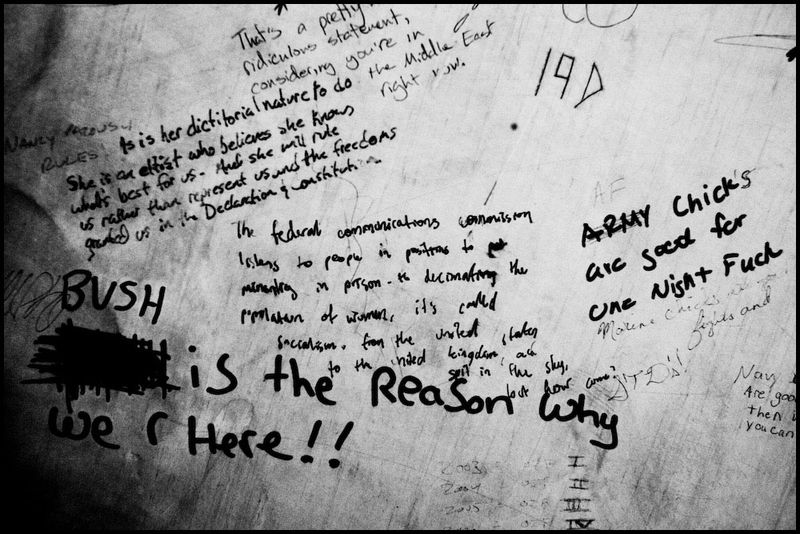 That's a pretty
ridiculous statement,
considering you're in
the Middle East
right now.
19D
NANCY
RULES
As is her dictitorial nature to do
She is an elitist who believes she knows
what's best for us. And she will rule
us rather than represent us and the freedoms
granted us in the Declaration & Constitution.
The federal communications commission
listens to people in positions to
in prison to decimating the
population of women, it's called
socialism. from the united states
to the united kingdom, and
in the sky,
AF
ARMY Chick's
are good for
one Night Fuck
Marine Chicks
fights and
STD's!!
BUSH
is the Reason Why
we r Here!!
Navy
Are good
then
you can
2003 I
2004 II
2005 III
IV